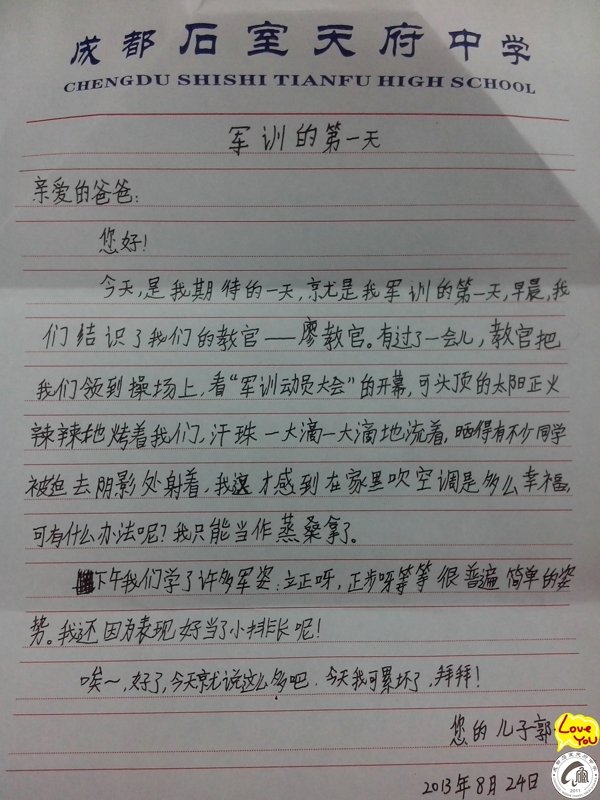 成都石室天府中学
CHENGDU SHISHI TIANFU HIGH SCHOOL
军训的第一天
亲爱的爸爸:
您好!
今天,是我期待的一天,就是我军训的第一天,早晨,我
们结识了我们的教官——廖教官。有过了一会儿,教官把
我们领到操场上,看“军训动员大会”的开幕,可头顶的太阳正火
辣辣地烤着我们,汗珠一大滴一大滴地流着,晒得有不少同学
被迫去阴影处躲着,我这才感到在家里吹空调是多么幸福,
可有什么办法呢?我只能当作蒸桑拿了。
下午我们学了许多军姿:立正呀,正步呀等等很普遍简单的姿
势。我还因为表现好当了小排长呢!
唉~,好了,今天就说这么多吧.今天我可累坏了,拜拜!
您的儿子郭
Love You
2011
2013年8月24日